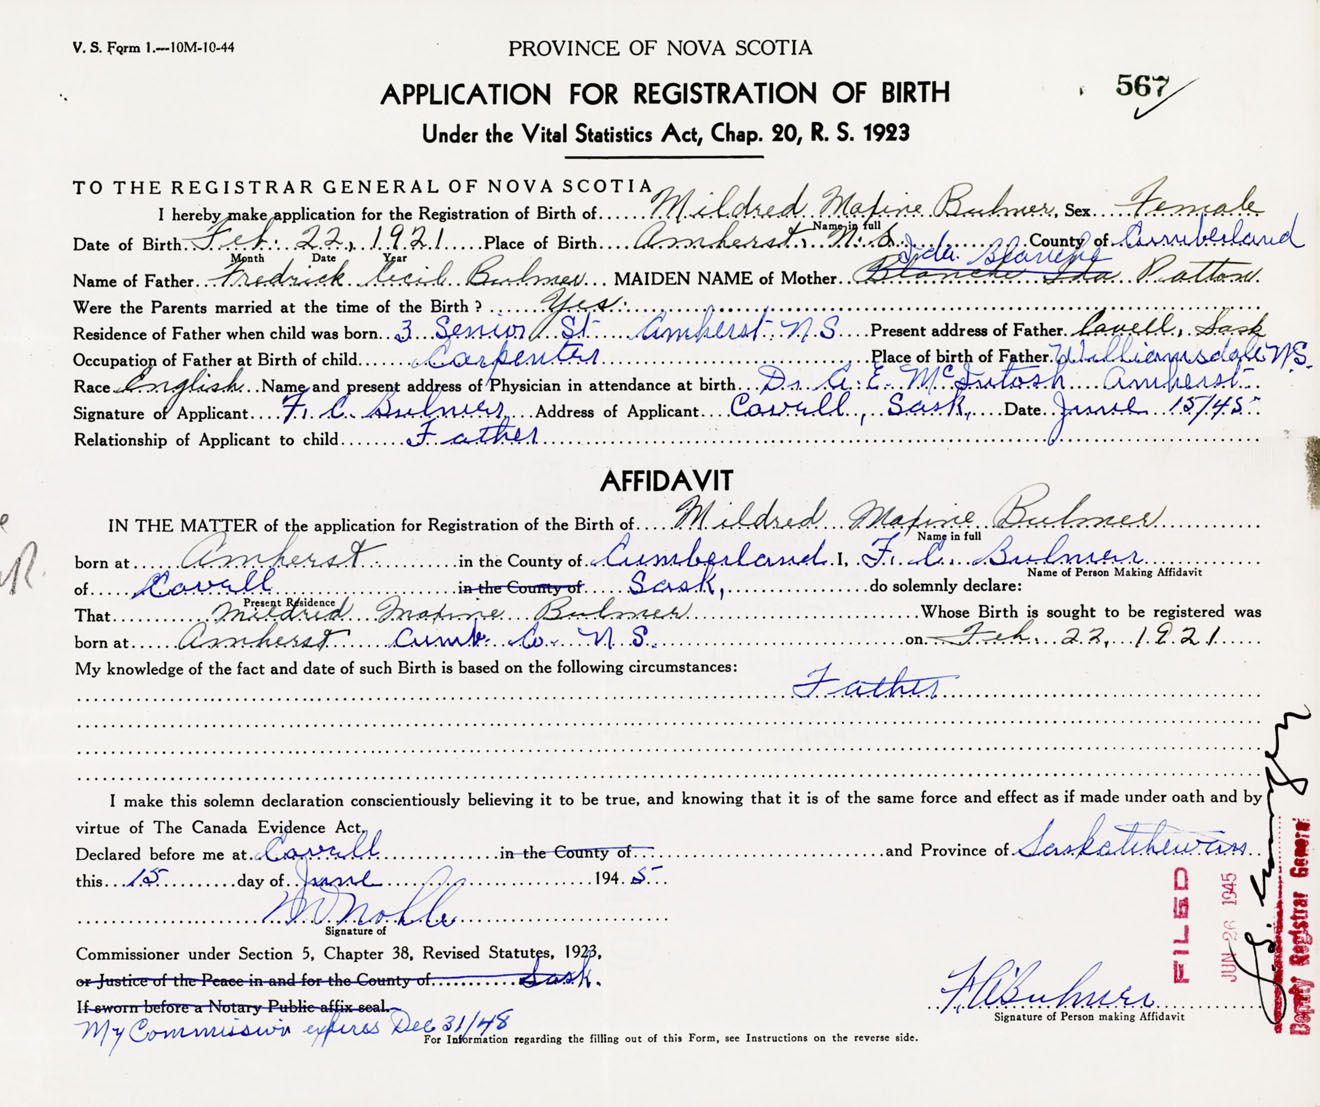 V. S. Form 1.—10M-10-44
PROVINCE OF NOVA SCOTIA
APPLICATION FOR REGISTRATION OF BIRTH
567
Under the Vital Statistics Act, Chap. 20, R. S. 1923
TO THE REGISTRAR GENERAL OF NOVA SCOTIA
I hereby make application for the Registration of Birth of Mildred Maxine Bulmer, Sex Female
Name in full
Date of Birth Feb. 22, 1921 Place of Birth Amherst, N. S. County of Cumberland
Month Date Year
Ida Blanche
Name of Father Fredrick Cecil Bulmer MAIDEN NAME of Mother Blanche Ida Patton
Were the Parents married at the time of the Birth ? Yes.
Residence of Father when child was born 3 Senior St Amherst N S Present address of Father Cavell, Sask
Occupation of Father at Birth of child Carpenter Place of birth of Father Williamsdale N.S.
Race English Name and present address of Physician in attendance at birth Dr. A. E. McIntosh Amherst
Signature of Applicant F. C. Bulmer Address of Applicant Cavell, Sask, Date June 15/45
Relationship of Applicant to child Father
AFFIDAVIT
IN THE MATTER of the application for Registration of the Birth of Mildred Maxine Bulmer
Name in full
born at Amherst in the County of Cumberland I, F. C. Bulmer
Name of Person Making Affidavit
of Cavell in the County of Sask, do solemnly declare:
Present Residence
That Mildred Maxine Bulmer Whose Birth is sought to be registered was
born at Amherst Cumb. Co. N. S. on Feb. 22, 1921
My knowledge of the fact and date of such Birth is based on the following circumstances:
Father
I make this solemn declaration conscientiously believing it to be true, and knowing that it is of the same force and effect as if made under oath and by
virtue of The Canada Evidence Act.
Declared before me at Cavell in the County of and Province of Saskatchewan
this 15 day of June 194 5
Noble
Signature of
Commissioner under Section 5, Chapter 38, Revised Statutes, 1923,
or Justice of the Peace in and for the County of Sask.
If sworn before a Notary Public affix seal.
My Commission expires Dec 31/48
F C Bulmer
Signature of Person making Affidavit
For Information regarding the filling out of this Form, see Instructions on the reverse side.
FILED
JUN 26 1945
Deputy Registrar General